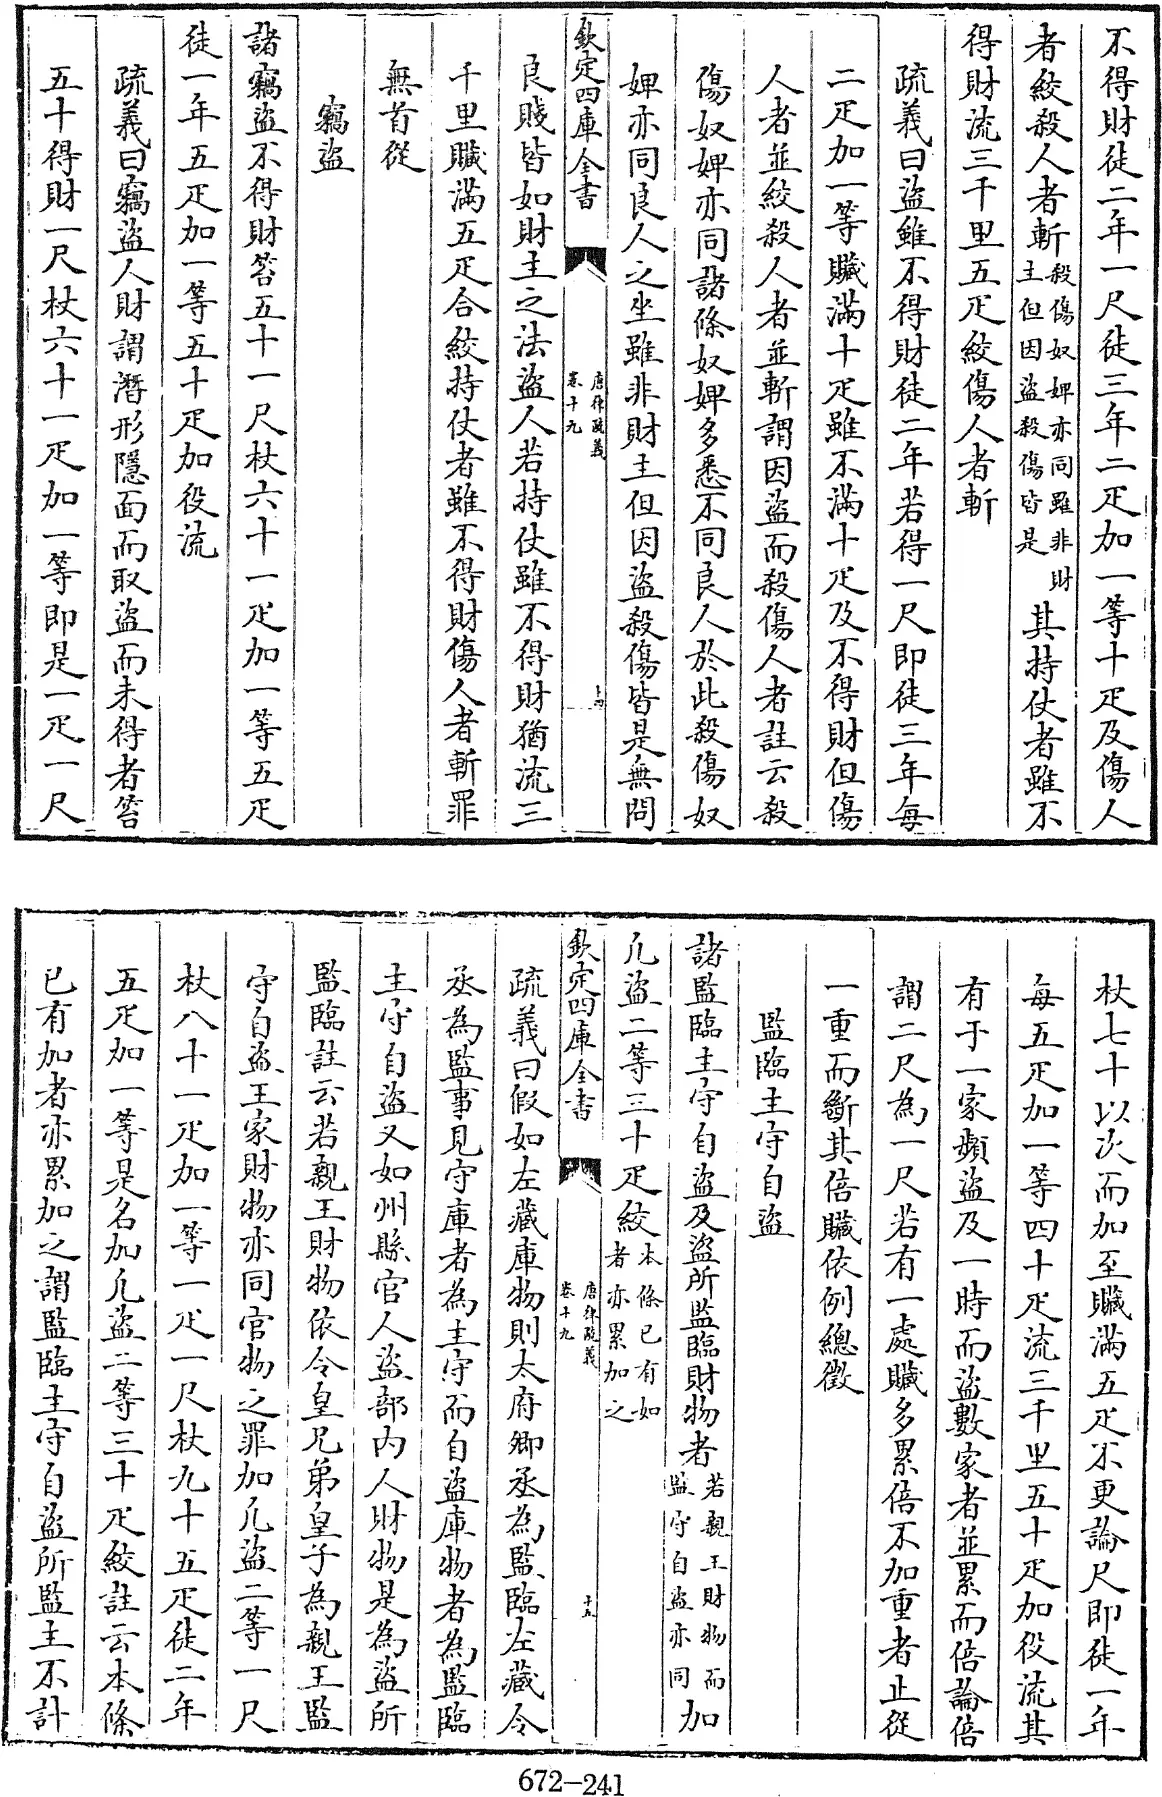 不得財徒二年一尺徒三年二疋加一等十疋及傷人
者絞殺人者斬殺傷奴婢亦同雖非財主但因盜殺傷皆是其持仗者雖不
得財流三千里五疋絞傷人者斬
疏義曰盜雖不得財徒二年若得一尺即徒三年每
二疋加一等贓滿十疋雖不滿十疋及不得財但傷
人者並絞殺人者並斬謂因盜而殺傷人者註云殺
傷奴婢亦同諸條奴婢多悉不同良人於此殺傷奴
婢亦同良人之坐雖非財主但因盜殺傷皆是無問
欽定四庫全書 唐律疏義 卷十九 十四
良賤皆如財主之法盜人若持仗雖不得財猶流三
千里贓滿五疋合絞持仗者雖不得財傷人者斬罪
無首從
竊盜
諸竊盜不得財笞五十一尺杖六十一疋加一等五疋
徒一年五疋加一等五十疋加役流
疏義曰竊盜人財謂潛形隱面而取盜而未得者笞
五十得財一尺杖六十一疋加一等即是一疋一尺
杖七十以次而加至贓滿五疋不更論尺即徒一年
每五疋加一等四十疋流三千里五十疋加役流其
有于一家頻盜及一時而盜數家者並累而倍論倍
謂二尺為一尺若有一處贓多累倍不加重者止從
一重而斷其倍贓依例總徵
監臨主守自盜
諸監臨主守自盜及盜所監臨財物者若親王財物而監守自盜亦同加
凡盜二等三十疋絞本條已有加者亦累加之
欽定四庫全書 唐律疏義 卷十九 十五
疏義曰假如左藏庫物則太府卿丞為監臨左藏令
丞為監事見守庫者為主守而自盜庫物者為監臨
主守自盜又如州縣官人盜部內人財物是為盜所
監臨註云若親王財物依令皇兄弟皇子為親王監
守自盜王家財物亦同官物之罪加凡盜二等一尺
杖八十一疋加一等一疋一尺杖九十五疋徒二年
五疋加一等是名加凡盜二等三十疋絞註云本條
已有加者亦累加之謂監臨主守自盜所監主不計
672-241